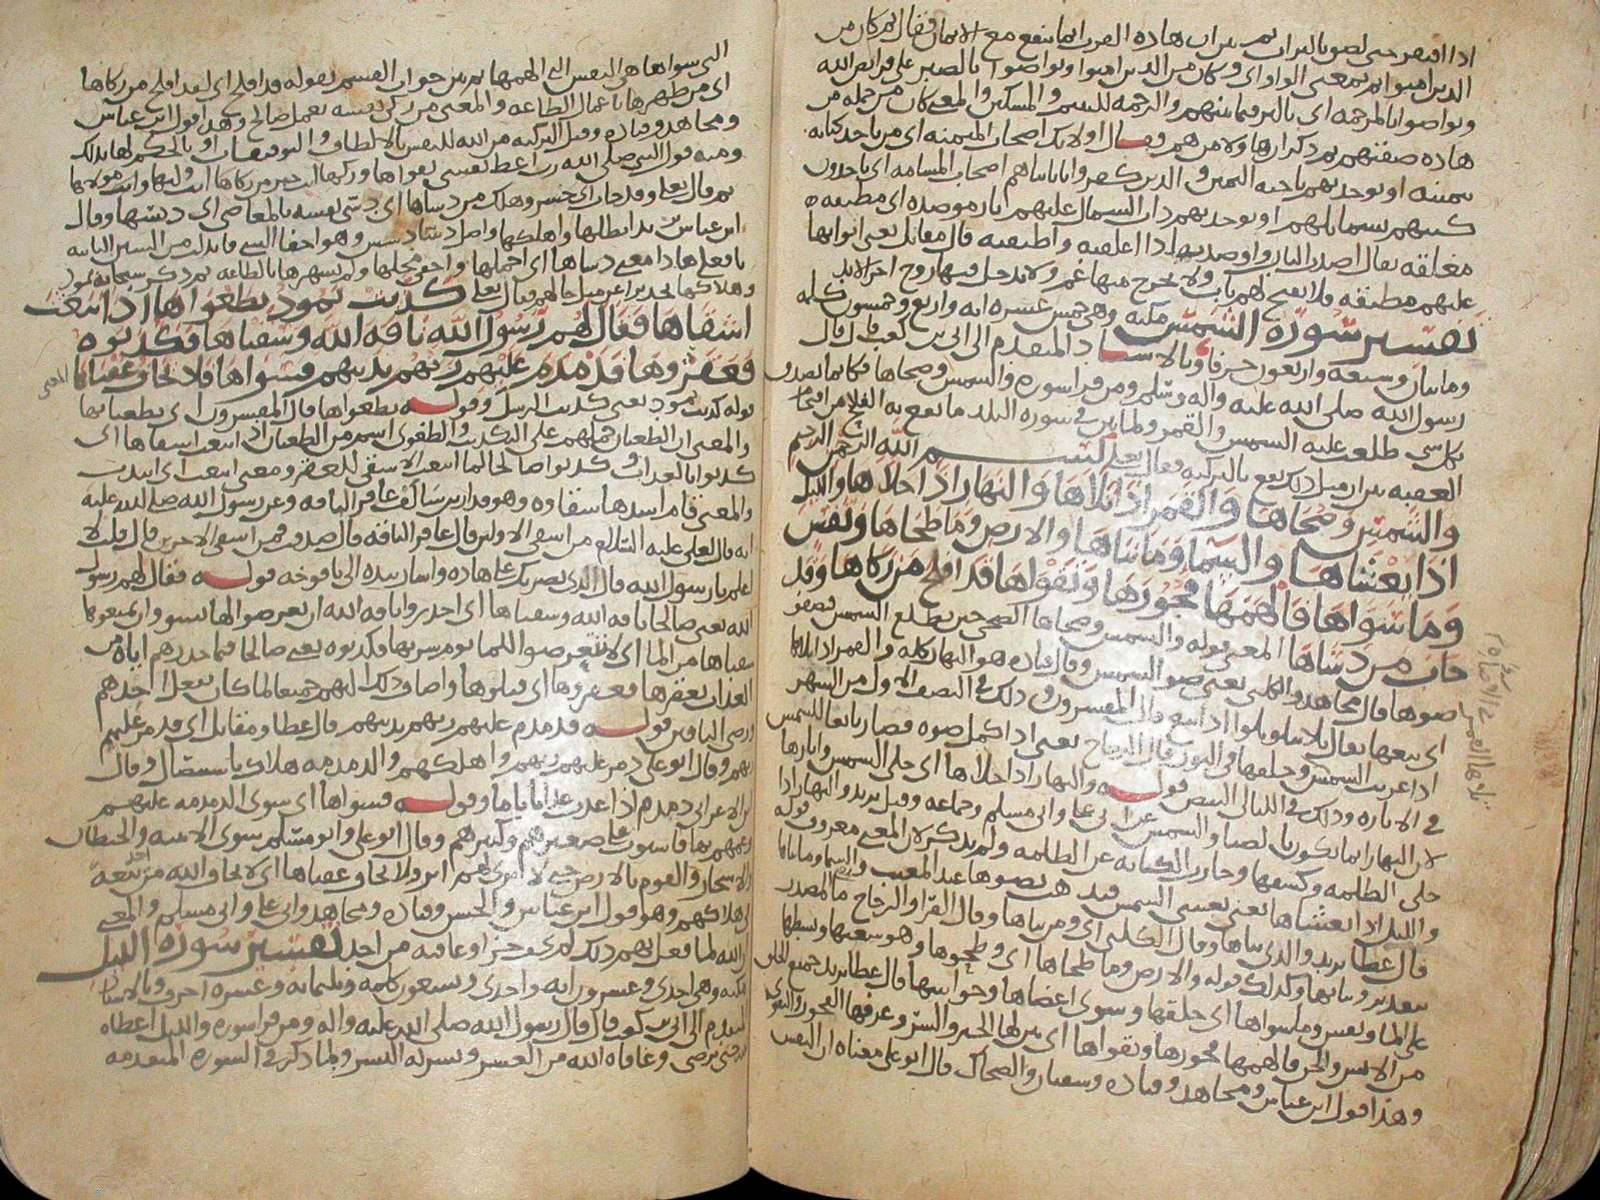 اذا اقتحم حتى لصق بالتراب ثم بين ان هذه القرب انما تنفع مع الايمان فقال ثم كان من
الذين امنوا ثم بمعنى الواو اى وكان من الذين امنوا وتواصوا بالصبر على فرايض الله
وتواصوا بالمرحمه اى بالبر فيما بينهم والرحمه لليتيم والمسكين والمعنى كان من جمله من
هاذه صفتهم ثم ذكر اولا من هم فقال اولايك اصحاب الميمنه اى من ياخذ كتابه
بيمينه او يوخذ بهم ناحيه اليمين والذين كفروا باياتنا هم اصحاب المشامه اى ياخذون
كتبهم بشمايلهم او يوخذ بهم ذات الشمال عليهم نار موصده اى مطبقه
مغلقه يقال اصدت الباب واوصدته اذا اغلقته واطبقته قال مقاتل يعنى ابوابها
عليهم مطبقه فلا يفتح لهم باب ولا يخرج منها غم ولا يدخل فيها روح اخر الابد
تفسير سوره الشمس مكيه وهى خمس عشره ايه واربع وخمسون كلمه
وماتان وسبعه واربعون حرفا وبالاسناد المتقدم الى ابى بن كعب قال قال
رسول الله صلى الله عليه واله وسلم ومن قرا سوره والشمس وضحاها فكانما تصدق
بكل شى طلعت عليه الشمس والقمر ولما بين فى سوره البلد ما يقع به الفكاك من اقتحام
العقبه بين ان مثل ذلك يقع بالتزكيه فقال تعالى بسم الله الرحمن الرحيم
والشمس وضحاها والقمر اذا تلاها والنهار اذا جلاها والليل
اذا يغشاها والسما وما بناها والارض وما طحاها ونفس
وما سواها فالهمها فجورها وتقواها قد افلح من زكاها وقد
خاب من دساها المعنى قوله والشمس وضحاها الضحى حين تطلع الشمس فيصفو
ضوها قال مجاهد والكلبى يعنى ضو الشمس وقال قتاده هو النهار كله والقمر اذا تلاها
اى تبعها يقال تلا يتلو تلوا اذا تبع قال المفسرون وذلك فى النصف الاول من الشهر
اذا غربت الشمس وخلفها فى النور قال الزجاج يعنى اذا كمل ضوه فصار تابعا للشمس
فى الاناره وذلك فى الليالى البيض قوله والنهار اذا جلاها اى جلى الشمس وابانها
لان النهار انما يكون بالضيا والشمس عن ابى على وابى مسلم وجماعه وقيل يريد والنهار اذا
جلى الظلمه وكشفها وجازت الكنايه عن الظلمه ولم يذكر لان المعنى معروف قوله
والليل اذا يغشاها يعنى يغشى الشمس فيذهب بضوها عند المغيب والسما وما بناها
قال عطا يريد والذى بناها وقال الكلبى اى ومن بناها وقال الفرا والزجاج ما المصدر
بتقدير وبنايها وكذلك قوله والارض وما طحاها اى وطحوها وهو سعتها وبسطها
على الما ونفس وما سواها اى خلقها وسوى اعضاها وحواسها قال عطا يريد جميع الخلق
من الانس والجن فالهمها فجورها وتقواها اى بين لها الخير والشر وعرفها الفجور والتقوى
وهذا قول ابن عباس ومجاهد وقتاده وسفيان والضحاك قال ابو على معناه ان النفس
التى سواها هى النفس التى الهمها ثم بين جواب القسم بقوله قد افلح اى لقد افلح من زكاها
اى من طهرها باعمال الطاعه والمعنى من زكى نفسه بعمل صالح وهذا قول ابن عباس
ومجاهد وقتاده وقيل التزكيه من الله للنفس بالالطاف والتوفيقات او بالحكم لها بذلك
ومنه قول النبى صلى الله رب اعط نفسى تقواها وزكها انت خير من زكاها انت وليها وانت مولاها
ثم قال تعلى وقد خاب اى خسر وهلك من دساها اى دسى نفسه بالمعاصى اى دسها وقال
ابن عباس يريد ابطلها واهلكها واصل دسا دسس وهو اخفا الشى فابدلت من السين الثانيه
يا فعلى هاذا معنى دساها اى اخملها واخفى محلها ولم يشهرها بالطاعه ثم ذكر سبحانه ثمود
وهلاكها تحذيرا عن مثل حالهم فقال تعلى كذبت ثمود بطغواها اذ انبعث
اشقاها فقال لهم رسول الله ناقه الله وسقياها فكذبوه
فعقروها فدمدم عليهم ربهم بذنبهم فسواها فلا يخاف عقباها المعنى
قوله كذبت ثمود يعنى كذبت الرسل وقوله بطغواها قال المفسرون اى بطغيانها
والمعنى ان الطغيان حملهم على التكذيب والطغوى اسم من الطغيان اذ انبعث اشقاها اى
كذبوا بالعذاب وكذبوا صالحا لما انبعث الاشقى للعقر ومعنى انبعث اى انتدب
والمعنى قام اسدها شقاوه وهو قدار بن سالف عاقر الناقه وعن رسول الله صلى الله عليه
انه قال لعلى عليه السلام من اشقى الاولين قال عاقر الناقه قال صدقت فمن اشقى الاخرين قال قلت لا
اعلم يا رسول الله قال الذى يضربك على هاذه واشار بيده الى يافوخه قوله فقال لهم رسول
الله يعنى صالحا ناقه الله وسقياها اى احذروا ناقه الله ان تعرضوا لها بسو وان تمنعوها
سقياها من الما اى لا تتعرضوا للما يوم شربها فكذبوه يعنى صالحا فيما حذرهم اياه من
العذاب بعقرها فعقروها اى قتلوها واضاف ذلك اليهم جميعا لما كان بفعل احدهم
ورضى الباقين قوله فدمدم عليهم ربهم بذنبهم قال عطا ومقاتل اى فدمر عليهم
ربهم وقال ابو على دمر عليهم ربهم واهلكهم والدمدمه هلاك باستيصال وقال
ابن الاعرابى دمدم اذا عذب عذابا تاما وقوله فسواها اى سوى الدمدمه عليهم
وعمهم بها فاستوت على صغيرهم وكبيرهم وقال ابو على وابو مسلم سوى الابنيه والحيطان
والاشجار والقوم بالارض حتى لا ترى لهم اثر ولا يخاف عقباها اى لا يخاف الله من تبعه
فى هلاكهم وهو قول ابن عباس والحسن وقتاده ومجاهد وابى على وابى مسلم والمعنى
ان الله لما فعل بهم ذلك لم يخف جزا وعاقبه من احد تفسير سوره الليل
مكيه وهى احدى وعشرون ايه واحدى وسبعون كلمه وثلثمايه وعشره احرف وبالاسناد
المتقدم الى ابى بن كعب قال قال رسول الله صلى الله عليه واله ومن قرا سوره والليل اعطاه
الله حتى يرضى وعافاه الله من العسر ويسر له اليسر ولما ذكر فى السوره المتقدمه